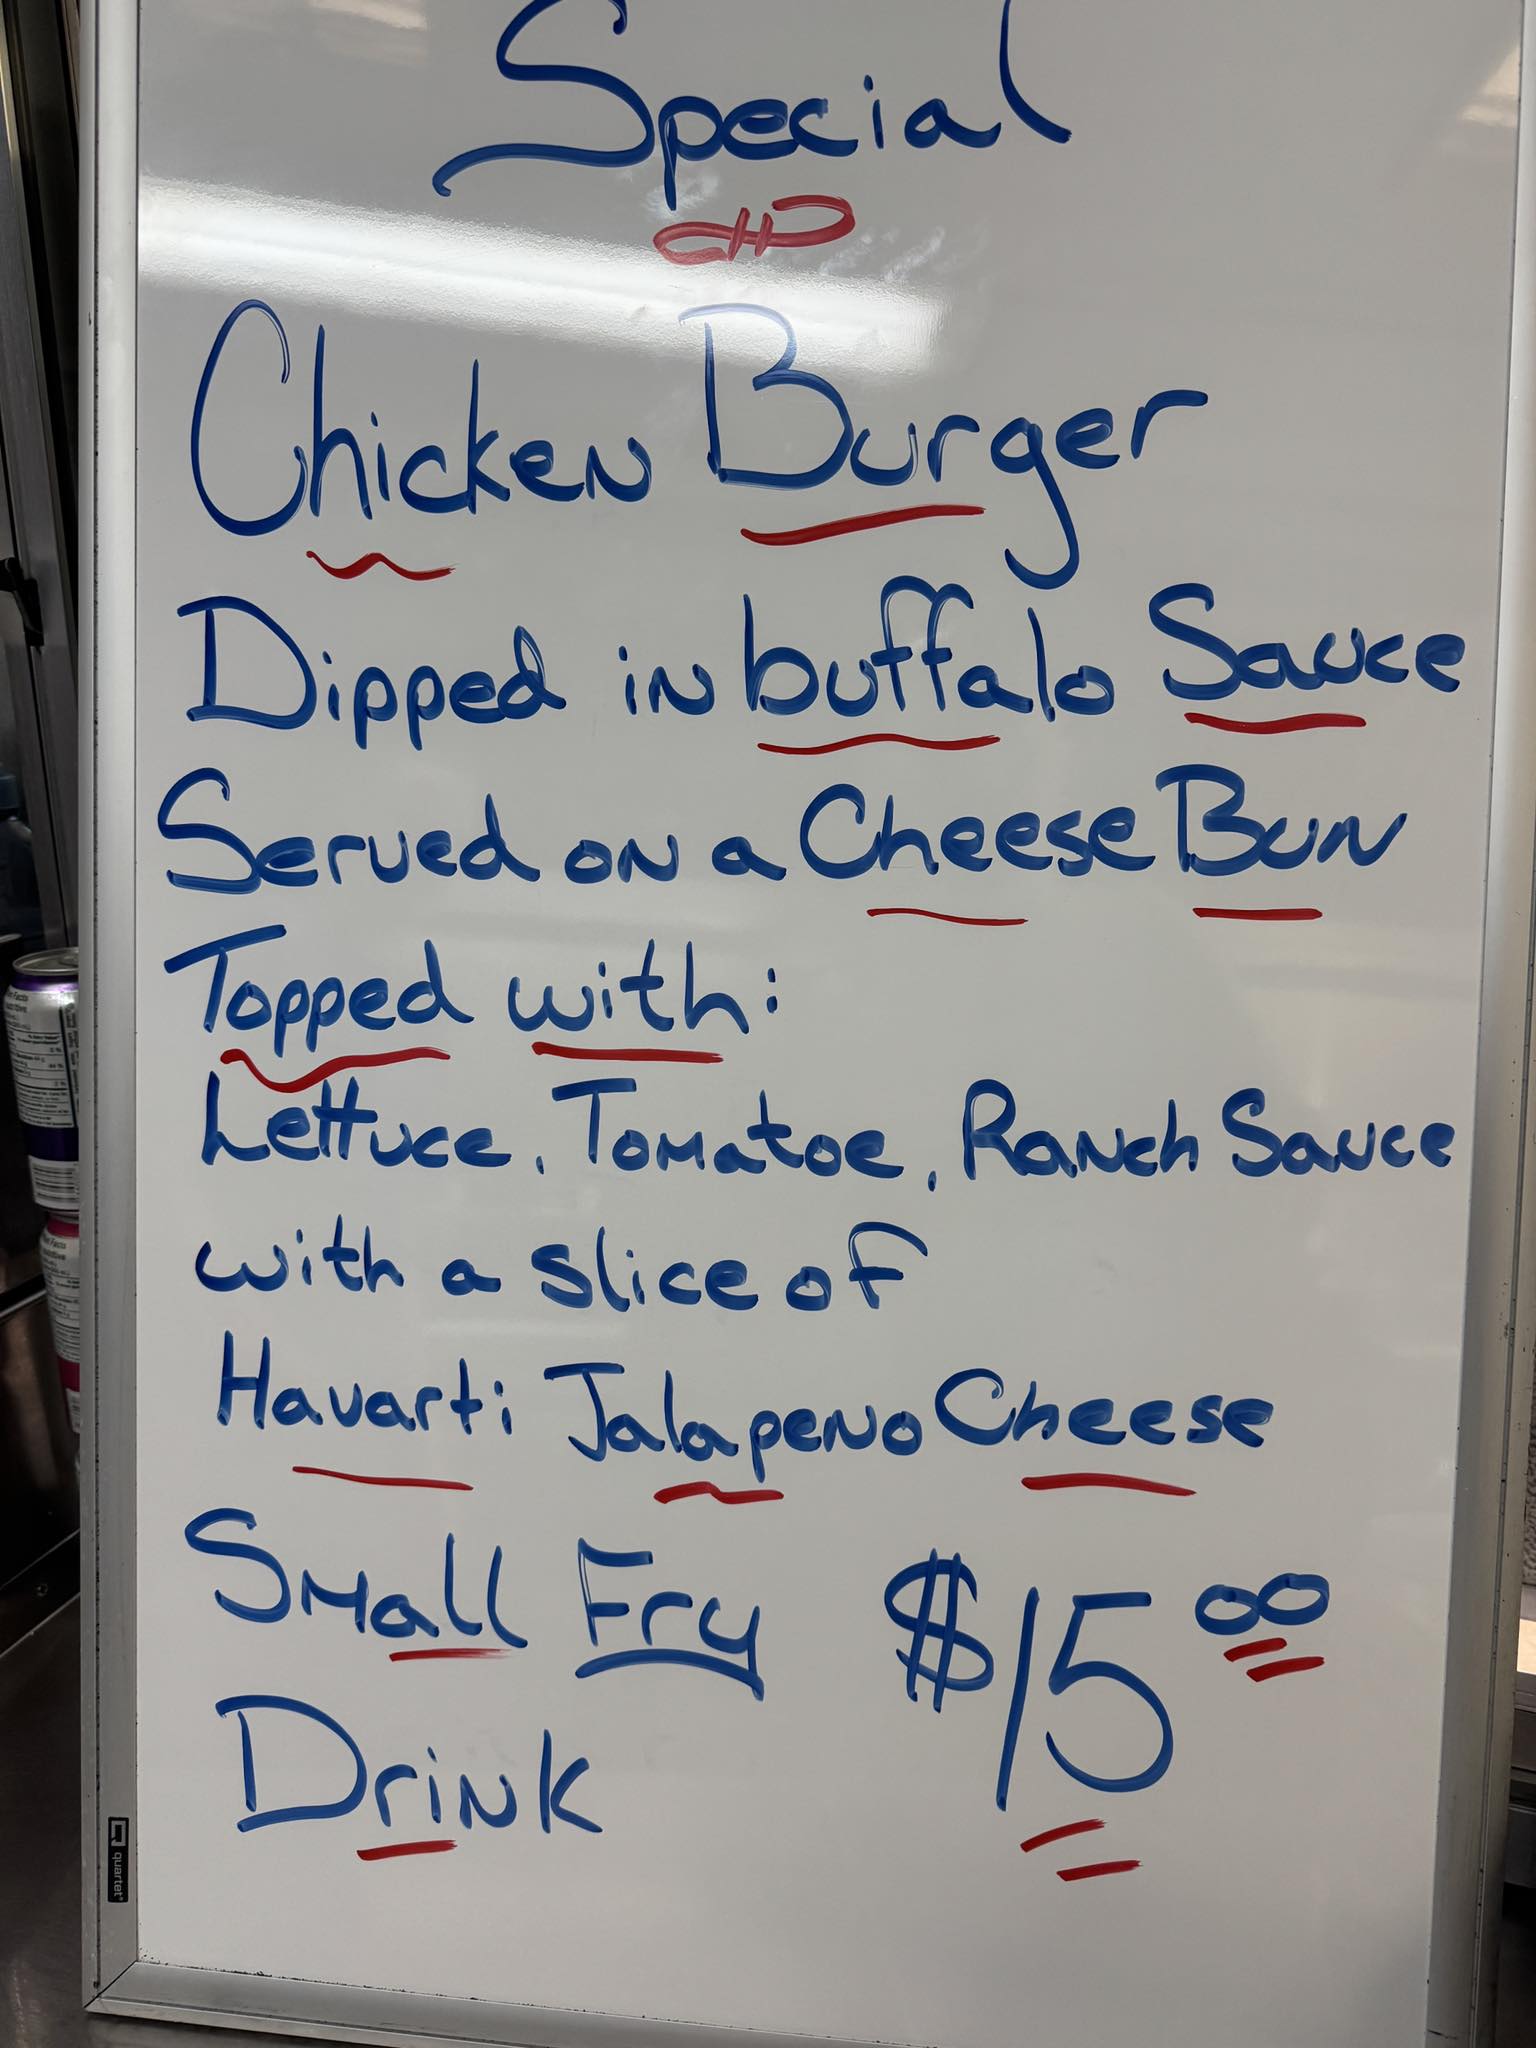 Special
Chicken Burger
Dipped in buffalo Sauce
Served on a Cheese Bun
Topped with:
Lettuce, Tomatoe, Ranch Sauce
with a slice of
Havarti Jalapeno Cheese
Small Fry $15.00
Drink
quartet